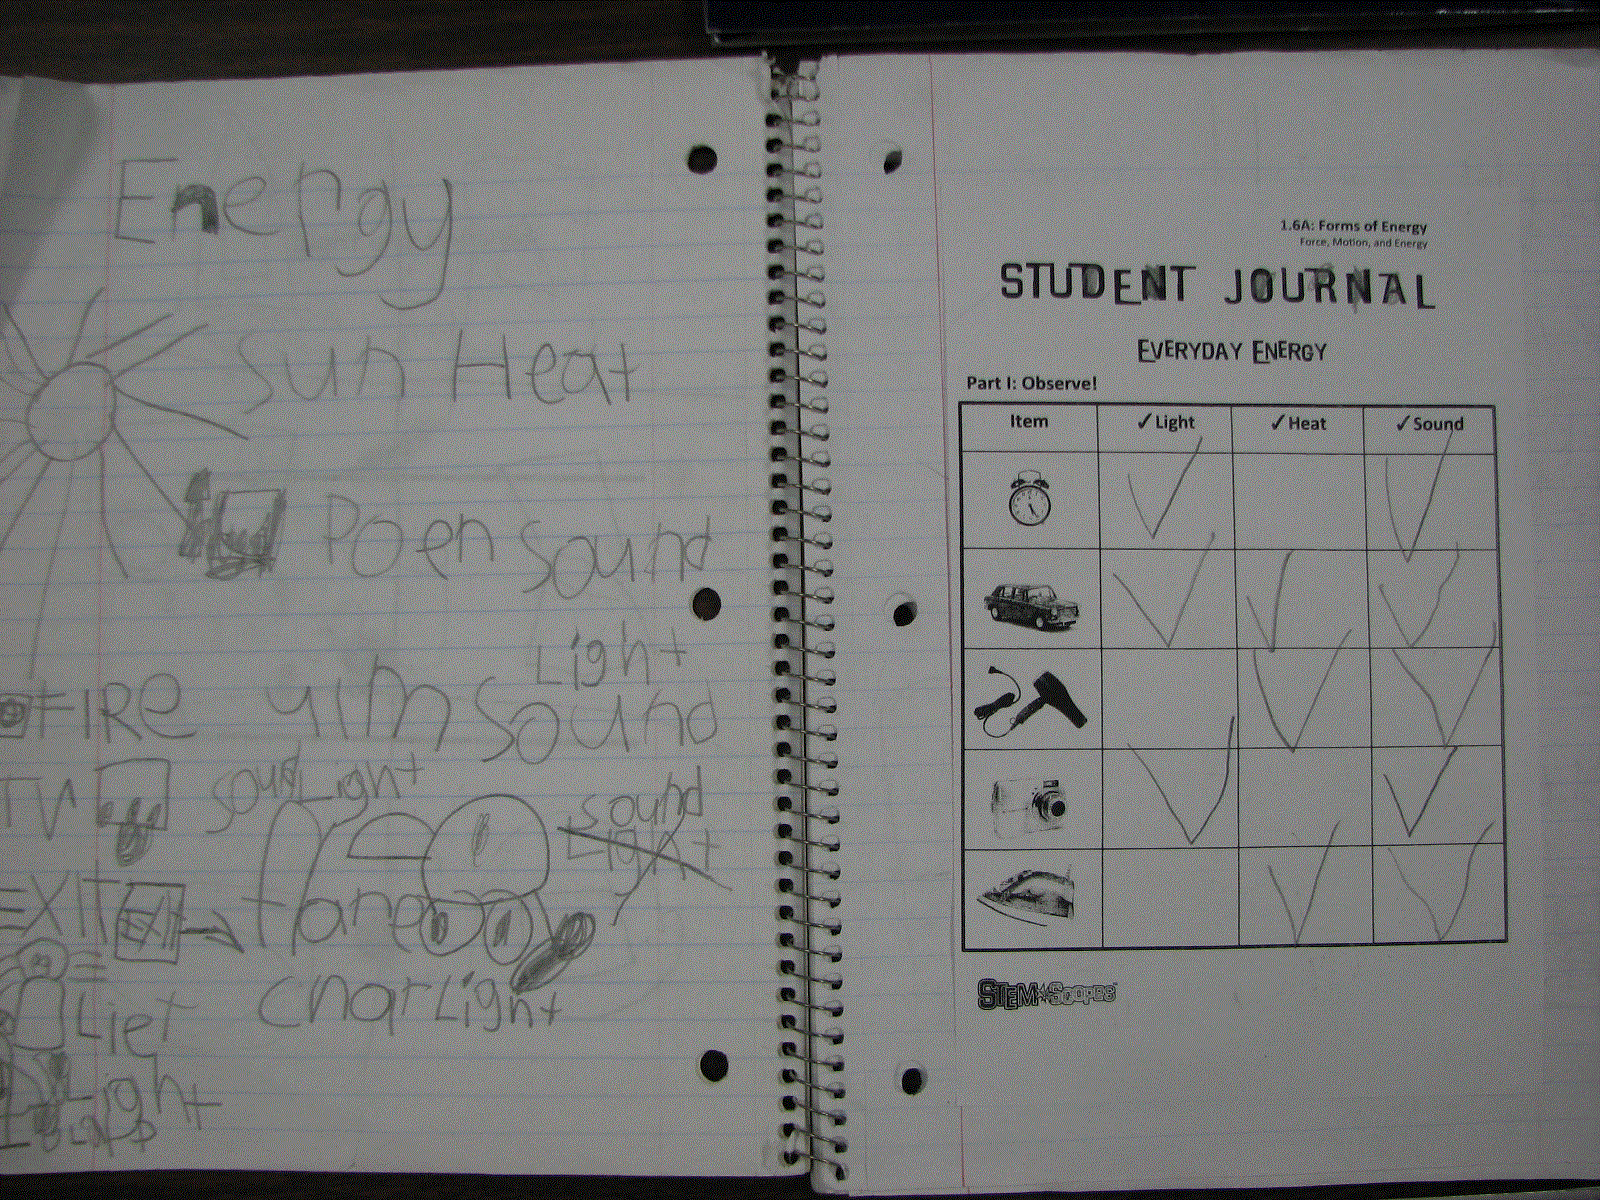 Energy
Sun Heat
Poen Sound
Light
FIRE yim Sound
TV Sound Light
Sound
Light
EXIT EXIT
Liet Char Light
Light
1.6A: Forms of Energy
Force, Motion, and Energy
STUDENT JOURNAL
EVERYDAY ENERGY
Part I: Observe!
Item ✓Light ✓Heat ✓Sound
STEMScopes